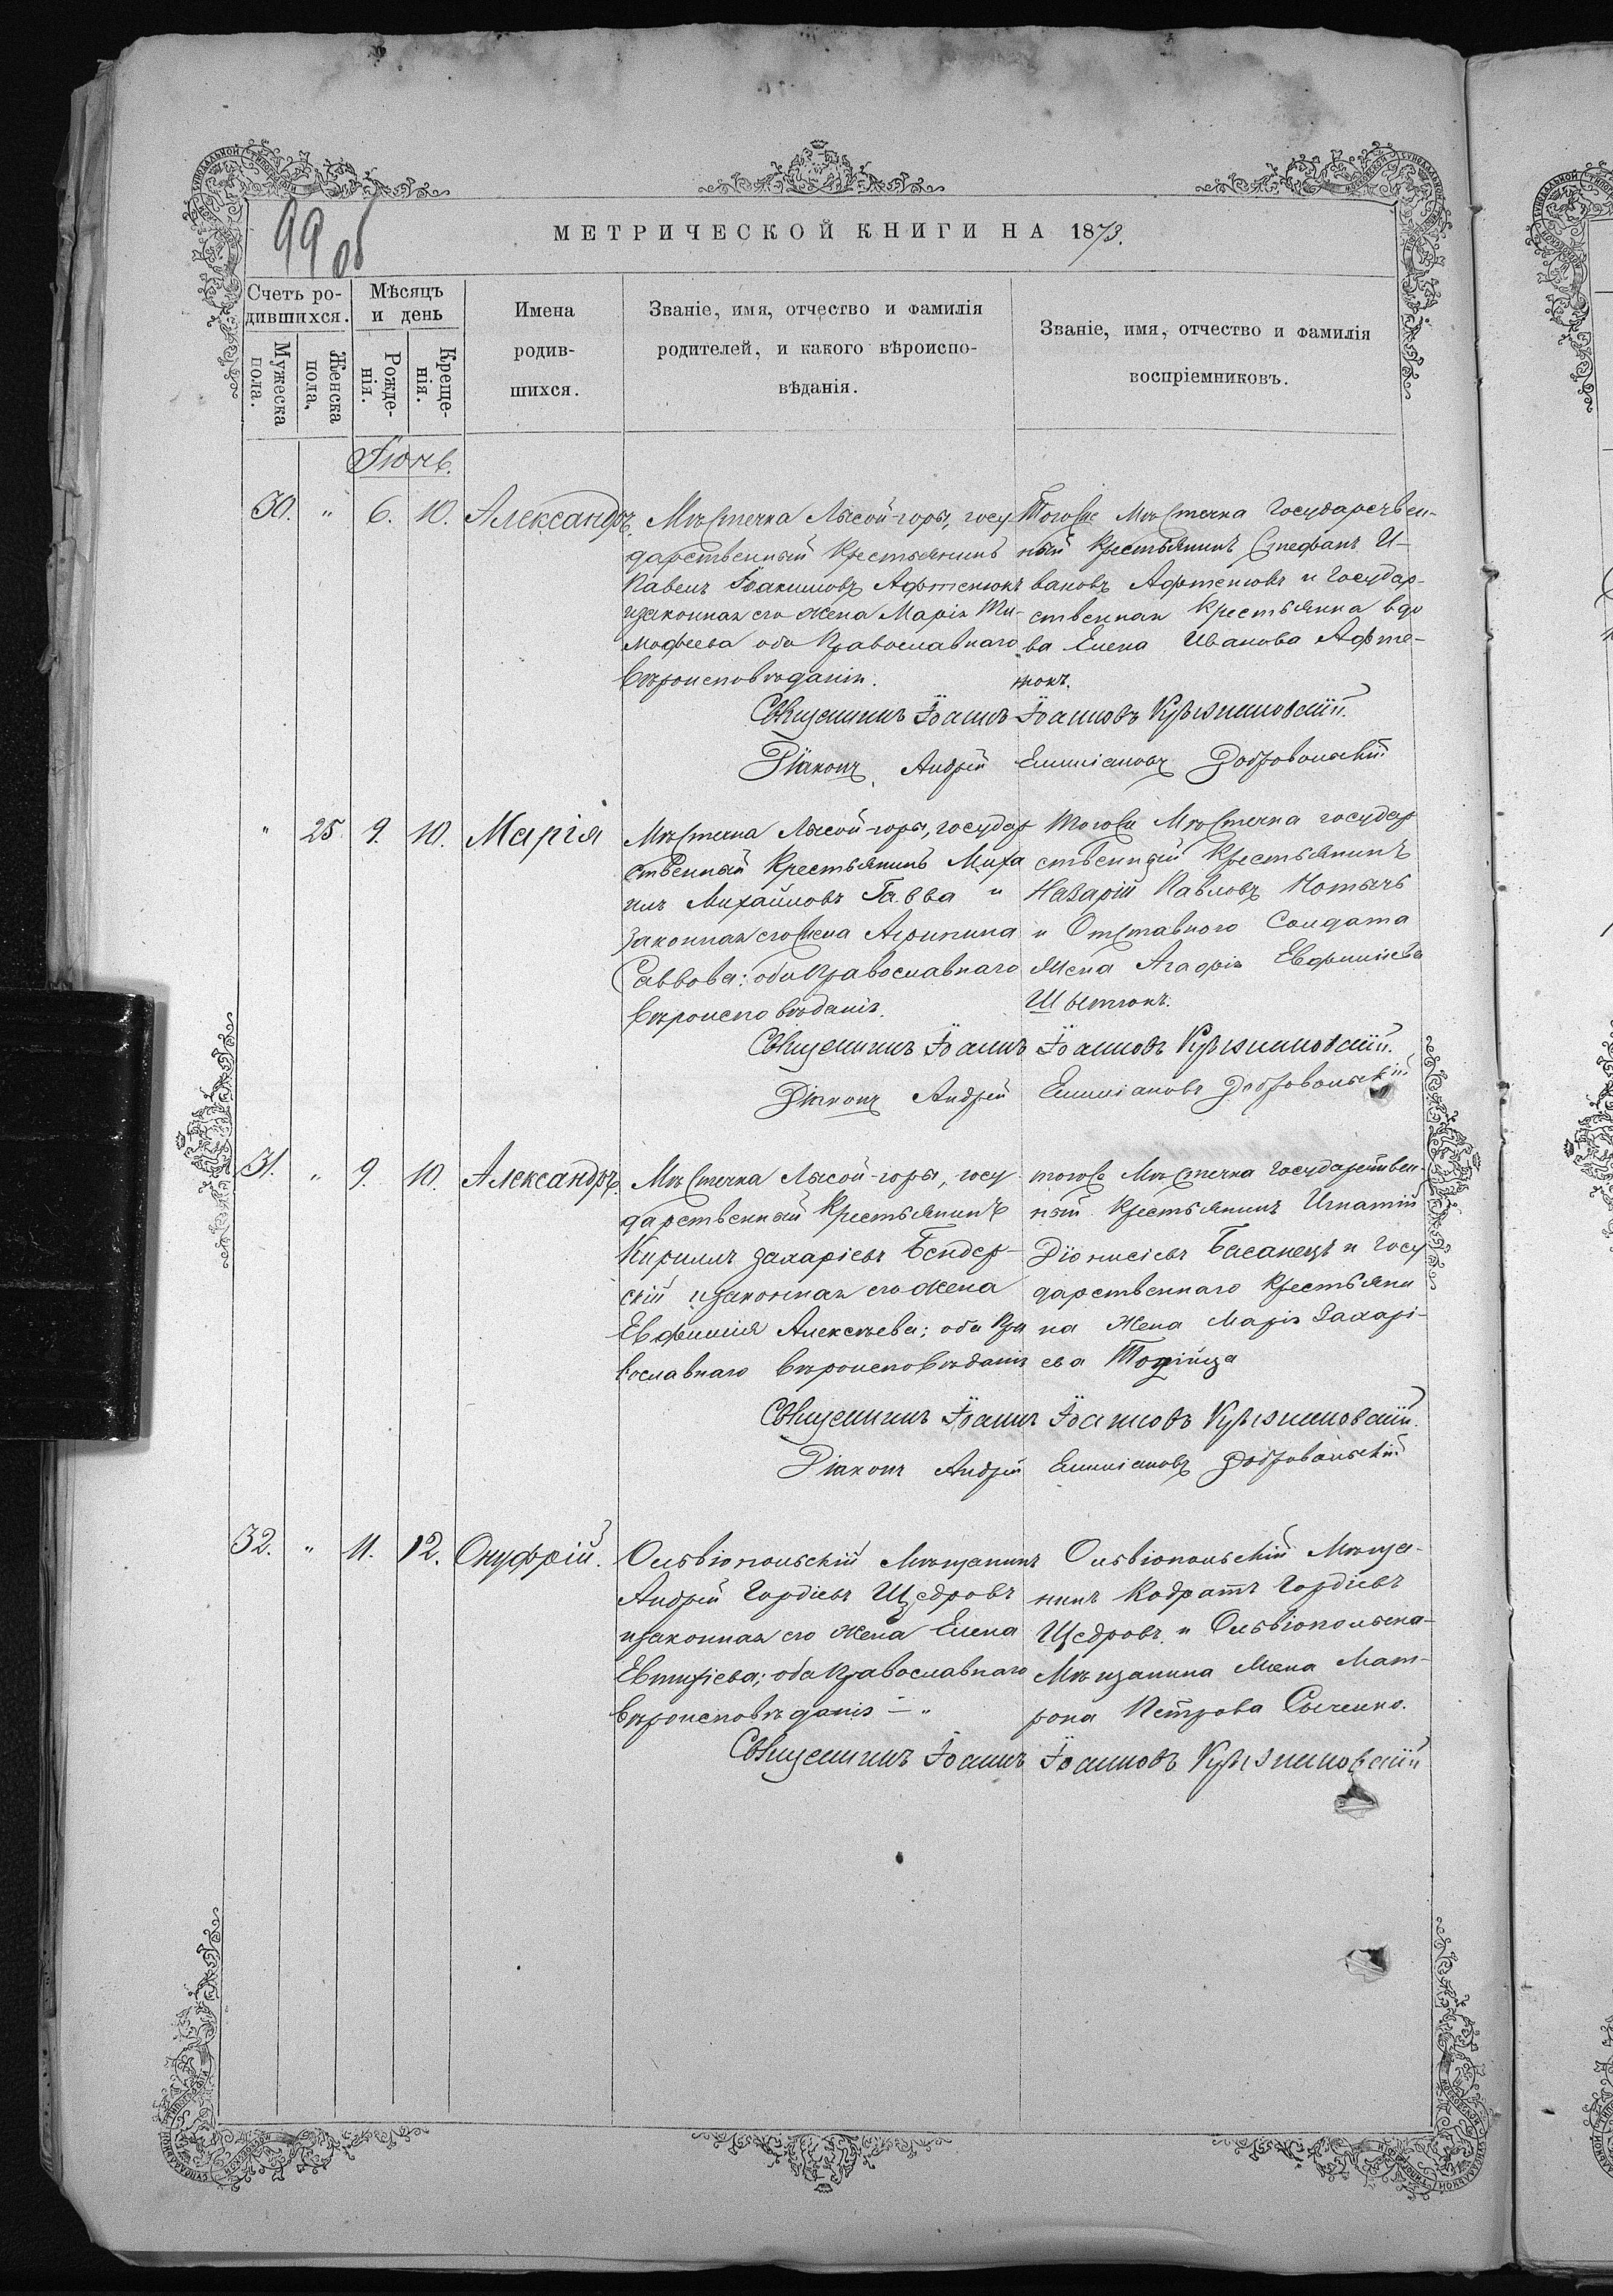 99 об
МЕТРИЧЕСКОЙ КНИГИ НА 1873.
Счетъ ро-
дившихся.
Мужеска
пола.
Женска
пола.
Мѣсяцъ
и день
Рожде-
нія.
Креще-
нія.
Имена
родив-
шихся.
Званіе, имя, отчество и фамилія
родителей, и какого вѣроиспо-
вѣданія.
Званіе, имя, отчество и фамилія
воспріемниковъ.
Іюнь.
30. " 6. 10. Александръ.
Мѣстечка Лысой-горы, госу-
дарственный крестьянинъ
Павелъ Іоакимовъ Афтенюкъ
и законная его жена Марія Ти-
мофеева оба православнаго
вѣроисповѣданія.
Тогоже мѣстечка государствен-
ный крестьянинъ Стефанъ И-
вановъ и государ-
ственная крестьянка вдо
ва Елена Иванова Афте-
нюкъ.
Священникъ Іоаннъ Іоанновъ
Діаконъ Андрей Емиліановъ Добровольскій.
" 25. 9. 10. Марія
Мѣстечка Лысой-горы, государ
ственный крестьянинъ Миха
илъ Михайловъ Гавва и
законная его жена Агрипина
Саввова: оба православнаго
вѣроисповѣданія.
Тогоже мѣстечка государ
ственный крестьянинъ
Назарій Павловъ
и отставного солдата
жена Агафія Евфиміева
Священникъ Іоаннъ Іоанновъ
Діаконъ Андрей Емиліановъ Добровольскій
31. " 9. 10. Александръ.
Мѣстечка Лысой-горы, госу
дарственный крестьянинъ
Кирилъ Захаріевъ Бендер-
скій и законная его жена
Евфимія Алексѣева; оба пра
вославнаго вѣроисповѣданія
тогоже мѣстечка государствен-
ный крестьянинъ Игнатій
Діонисіевъ Басанецъ и госу
дарственнаго крестьяни
на жена Марія Захарі-
ева
Священникъ Іоаннъ Іоанновъ
Діаконъ Андрей Емиліановъ Добровольскій
32. " 11. 12. Онуфрій.
Ольвіопольскій мѣщанинъ
Андрей Гордіевъ Щедровъ
и законная его жена Елена
Евтихіева; оба православнаго
вѣроисповѣданія — "
Ольвіопольскій мѣща-
нинъ Кодратъ Гордіевъ
Щедровъ и Ольвіопольска-
мѣщанина жена Мат-
рона Петрова Сыченко.
Священникъ Іоаннъ Іоанновъ